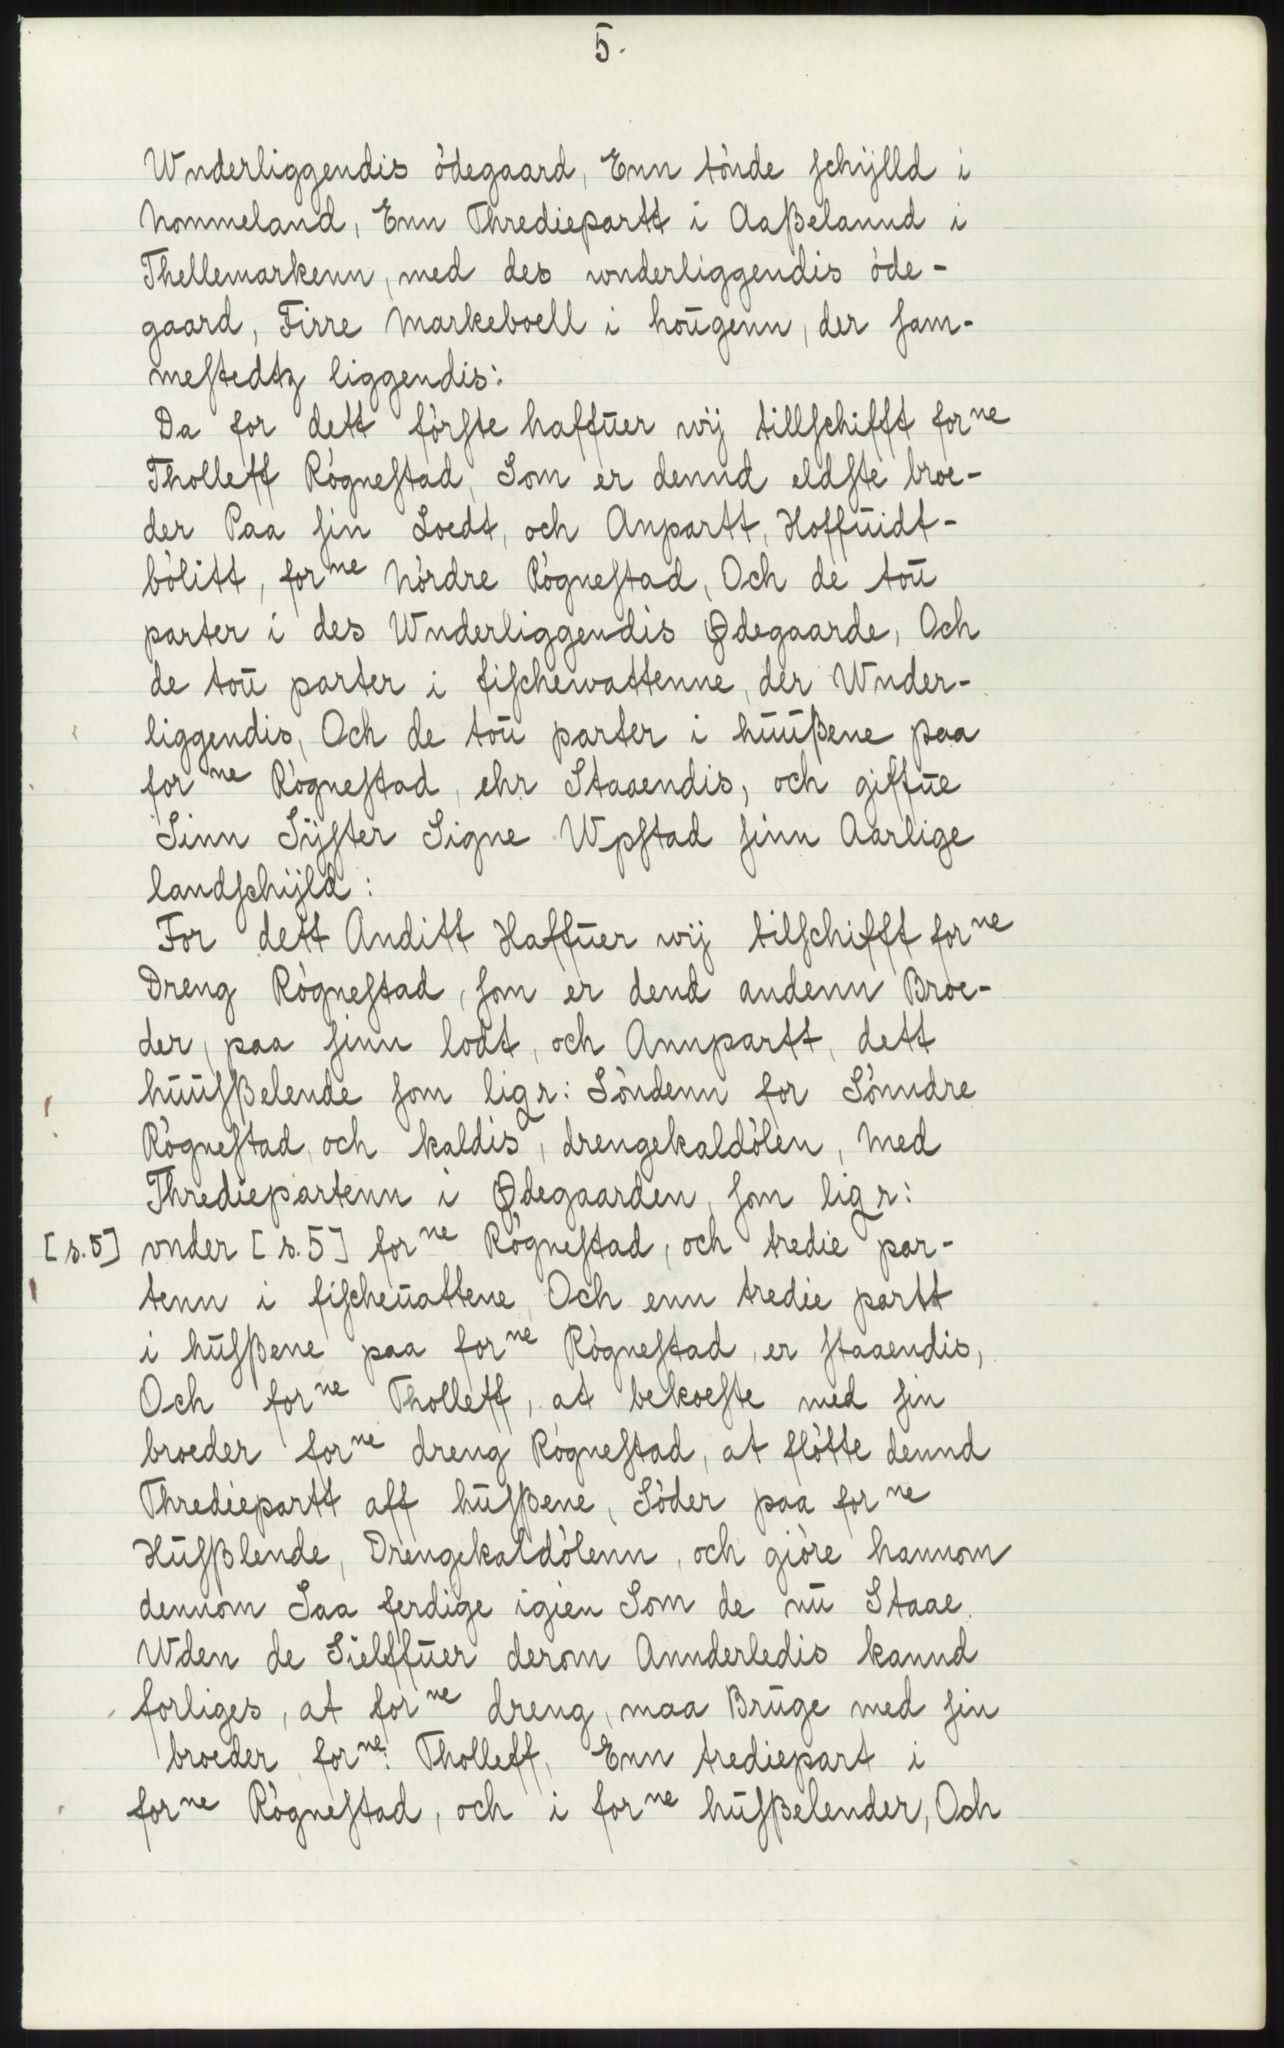 5.
Wnderliggendis ödegaard, Enn tònde schijlld i
Nommeland, Enn Thrediepartt i Aaßelannd i
Thellemarkenn, med des wnderliggendis òde-
gaard, Firre Markeboell i hoūgenn, der sam-
mestedtz liggendis:
Da for dett förste haffūer wij tillschifft forne
Tholleff Rògnestad, Som er dennd eldste broe-
der Paa sin Loedt, och Anpartt, Hoffūidt-
bòlitt, forne Nòrdre Rògnestad, Och de toū
parter i des Wnderliggendis Ødegaarde, Och
de toū parter i fischewattenne, der Wnder-
liggendis, Och de toū parter i hūūßene paa
forne Rògnestad, ehr Staaendis, och giffūe
Sinn Sÿster Signe Wpstad sinn Aarlige
landschijld:
For dett Anditt Haffūer wij tilschifft forne
Dreng Rògnestad, som er dend andenn Broe-
der, paa sinn lodt, och Annpartt, dett
hūūsßelende som ligr: Söndenn for Sònndre
Rògnestad, och kaldis, drengekaldòlen, Med
Thrediepartenn i Ødegaarden, som ligr:
[s.5] vnder [s.5] forne Rògnestad, och tredie par-
tenn i fischeūattene, Och enn tredie partt
i hūsßene paa forne Rògnestad, er staaendis,
Och forne Tholleff, at bekoeste med sin
broeder forne dreng Rògnestad, at flòtte dennd
Thrediepartt aff hūsßene, Söder paa forne
Hūsßlende, Drengekaldòlenn, och giòre hannom
dennom Saa ferdige igien Som de nū Staae.
Wden de Sielffūer derom Annderledis kannd
forliges, at forne dreng, maa Brūge med sin
broeder forne: Tholleff, Enn trediepart i
forne Rògnestad, och i forne hūsßelender, Och